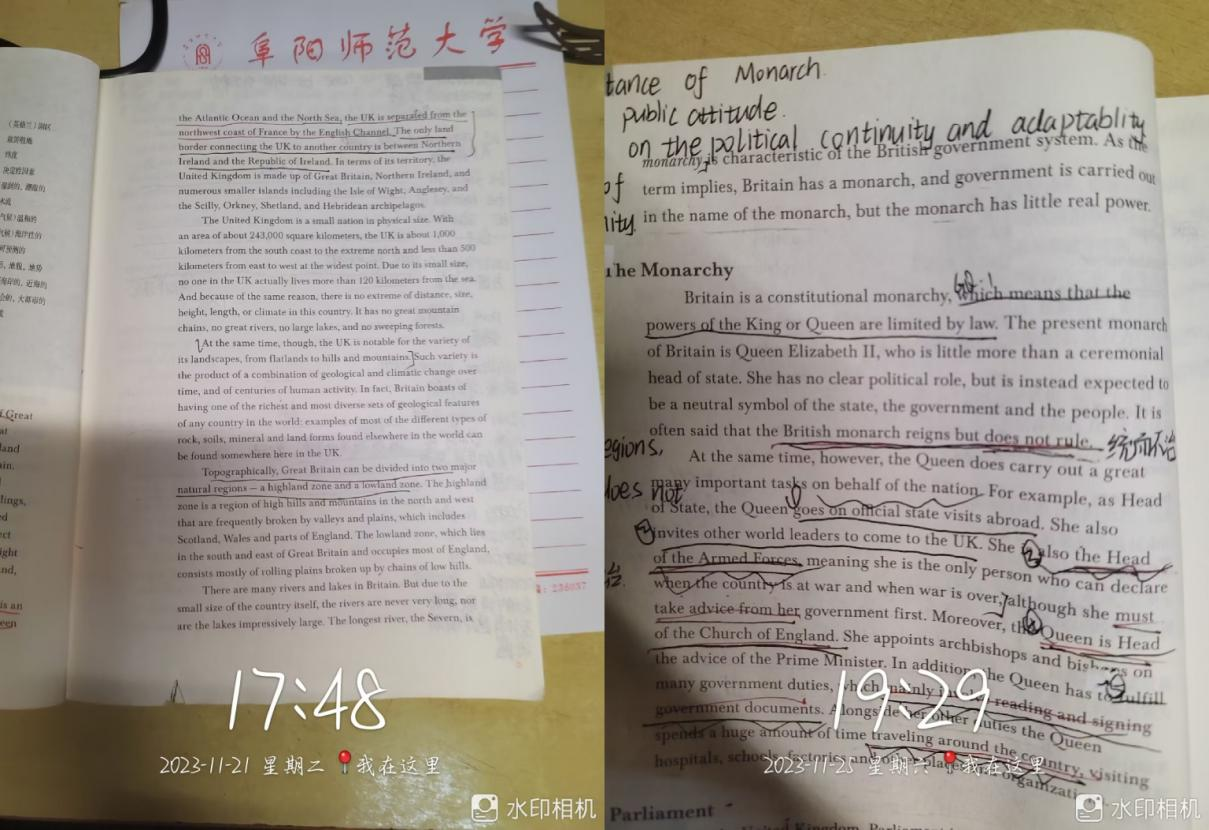 阜阳师范大学
(英格兰)湖区
纬度
决定性因素
the Atlantic Ocean and the North Sea, the UK is separated from the
northwest coast of France by the English Channel. The only land
border connecting the UK to another country is between Northern
Ireland and the Republic of Ireland. In terms of its territory, the
United Kingdom is made up of Great Britain, Northern Ireland, and
numerous smaller islands including the Isle of Wight, Anglesey, and
the Scilly, Orkney, Shetland, and Hebridean archipelagos.
The United Kingdom is a small nation in physical size. With
an area of about 243,000 square kilometers, the UK is about 1,000
kilometers from the south coast to the extreme north and less than 500
kilometers from east to west at the widest point. Due to its small size,
no one in the UK actually lives more than 120 kilometers from the sea.
And because of the same reason, there is no extreme of distance, size,
height, length, or climate in this country. It has no great mountain
chains, no great rivers, no large lakes, and no sweeping forests.
At the same time, though, the UK is notable for the variety of
its landscapes, from flatlands to hills and mountains. Such variety is
the product of a combination of geological and climatic change over
time, and of centuries of human activity. In fact, Britain boasts of
having one of the richest and most diverse sets of geological features
of any country in the world: examples of most of the different types of
rock, soils, mineral and land forms found elsewhere in the world can
be found somewhere here in the UK.
Topographically, Great Britain can be divided into two major
natural regions – a highland zone and a lowland zone. The highland
zone is a region of high hills and mountains in the north and west
that are frequently broken by valleys and plains, which includes
Scotland, Wales and parts of England. The lowland zone, which lies
in the south and east of Great Britain and occupies most of England,
consists mostly of rolling plains broken up by chains of low hills.
There are many rivers and lakes in Britain. But due to the
small size of the country itself, the rivers are never very long, nor
are the lakes impressively large. The longest river, the Severn, is
17:48
2023-11-21 星期二 我在这里
水印相机
tance of Monarch.
public attitude.
on the political continuity and adaptablity
monarchy is characteristic of the British government system. As the
of term implies, Britain has a monarch, and government is carried out
lity. in the name of the monarch, but the monarch has little real power.
The Monarchy
Britain is a constitutional monarchy, which means that the
powers of the King or Queen are limited by law. The present monarch
of Britain is Queen Elizabeth II, who is little more than a ceremonial
head of state. She has no clear political role, but is instead expected to
be a neutral symbol of the state, the government and the people. It is
often said that the British monarch reigns but does not rule. 统而不治
egions,
At the same time, however, the Queen does carry out a great
does not
many important tasks on behalf of the nation. For example, as Head
of State, the Queen goes on official state visits abroad. She also
invites other world leaders to come to the UK. She is also the Head
of the Armed Forces, meaning she is the only person who can declare
when the country is at war and when war is over, although she must
take advice from her government first. Moreover, the Queen is Head
of the Church of England. She appoints archbishops and bishops on
the advice of the Prime Minister. In addition, the Queen has to fulfill
many government duties, which mainly reading and signing
government documents. Alongside her other duties the Queen
spends a huge amount of time traveling around the country, visiting
hospitals, schools, factories, and other places
Parliament
19:29
2023-11-25 星期六 我在这里
水印相机